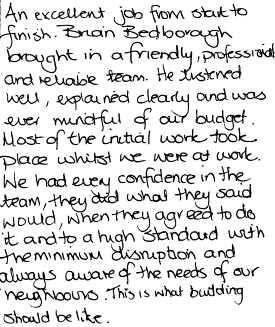 An excellent job from start to
finish. Brian Bedborough
brought in a friendly, professional
and reliable team. He listened
well, explained clearly and was
ever mindful of our budget.
Most of the initial work took
place whilst we were at work.
We had every confidence in the
team, they did what they said
would, when they agreed to do
it and to a high standard with
the minimum disruption and
always aware of the needs of our
neighbours. This is what building
should be like.